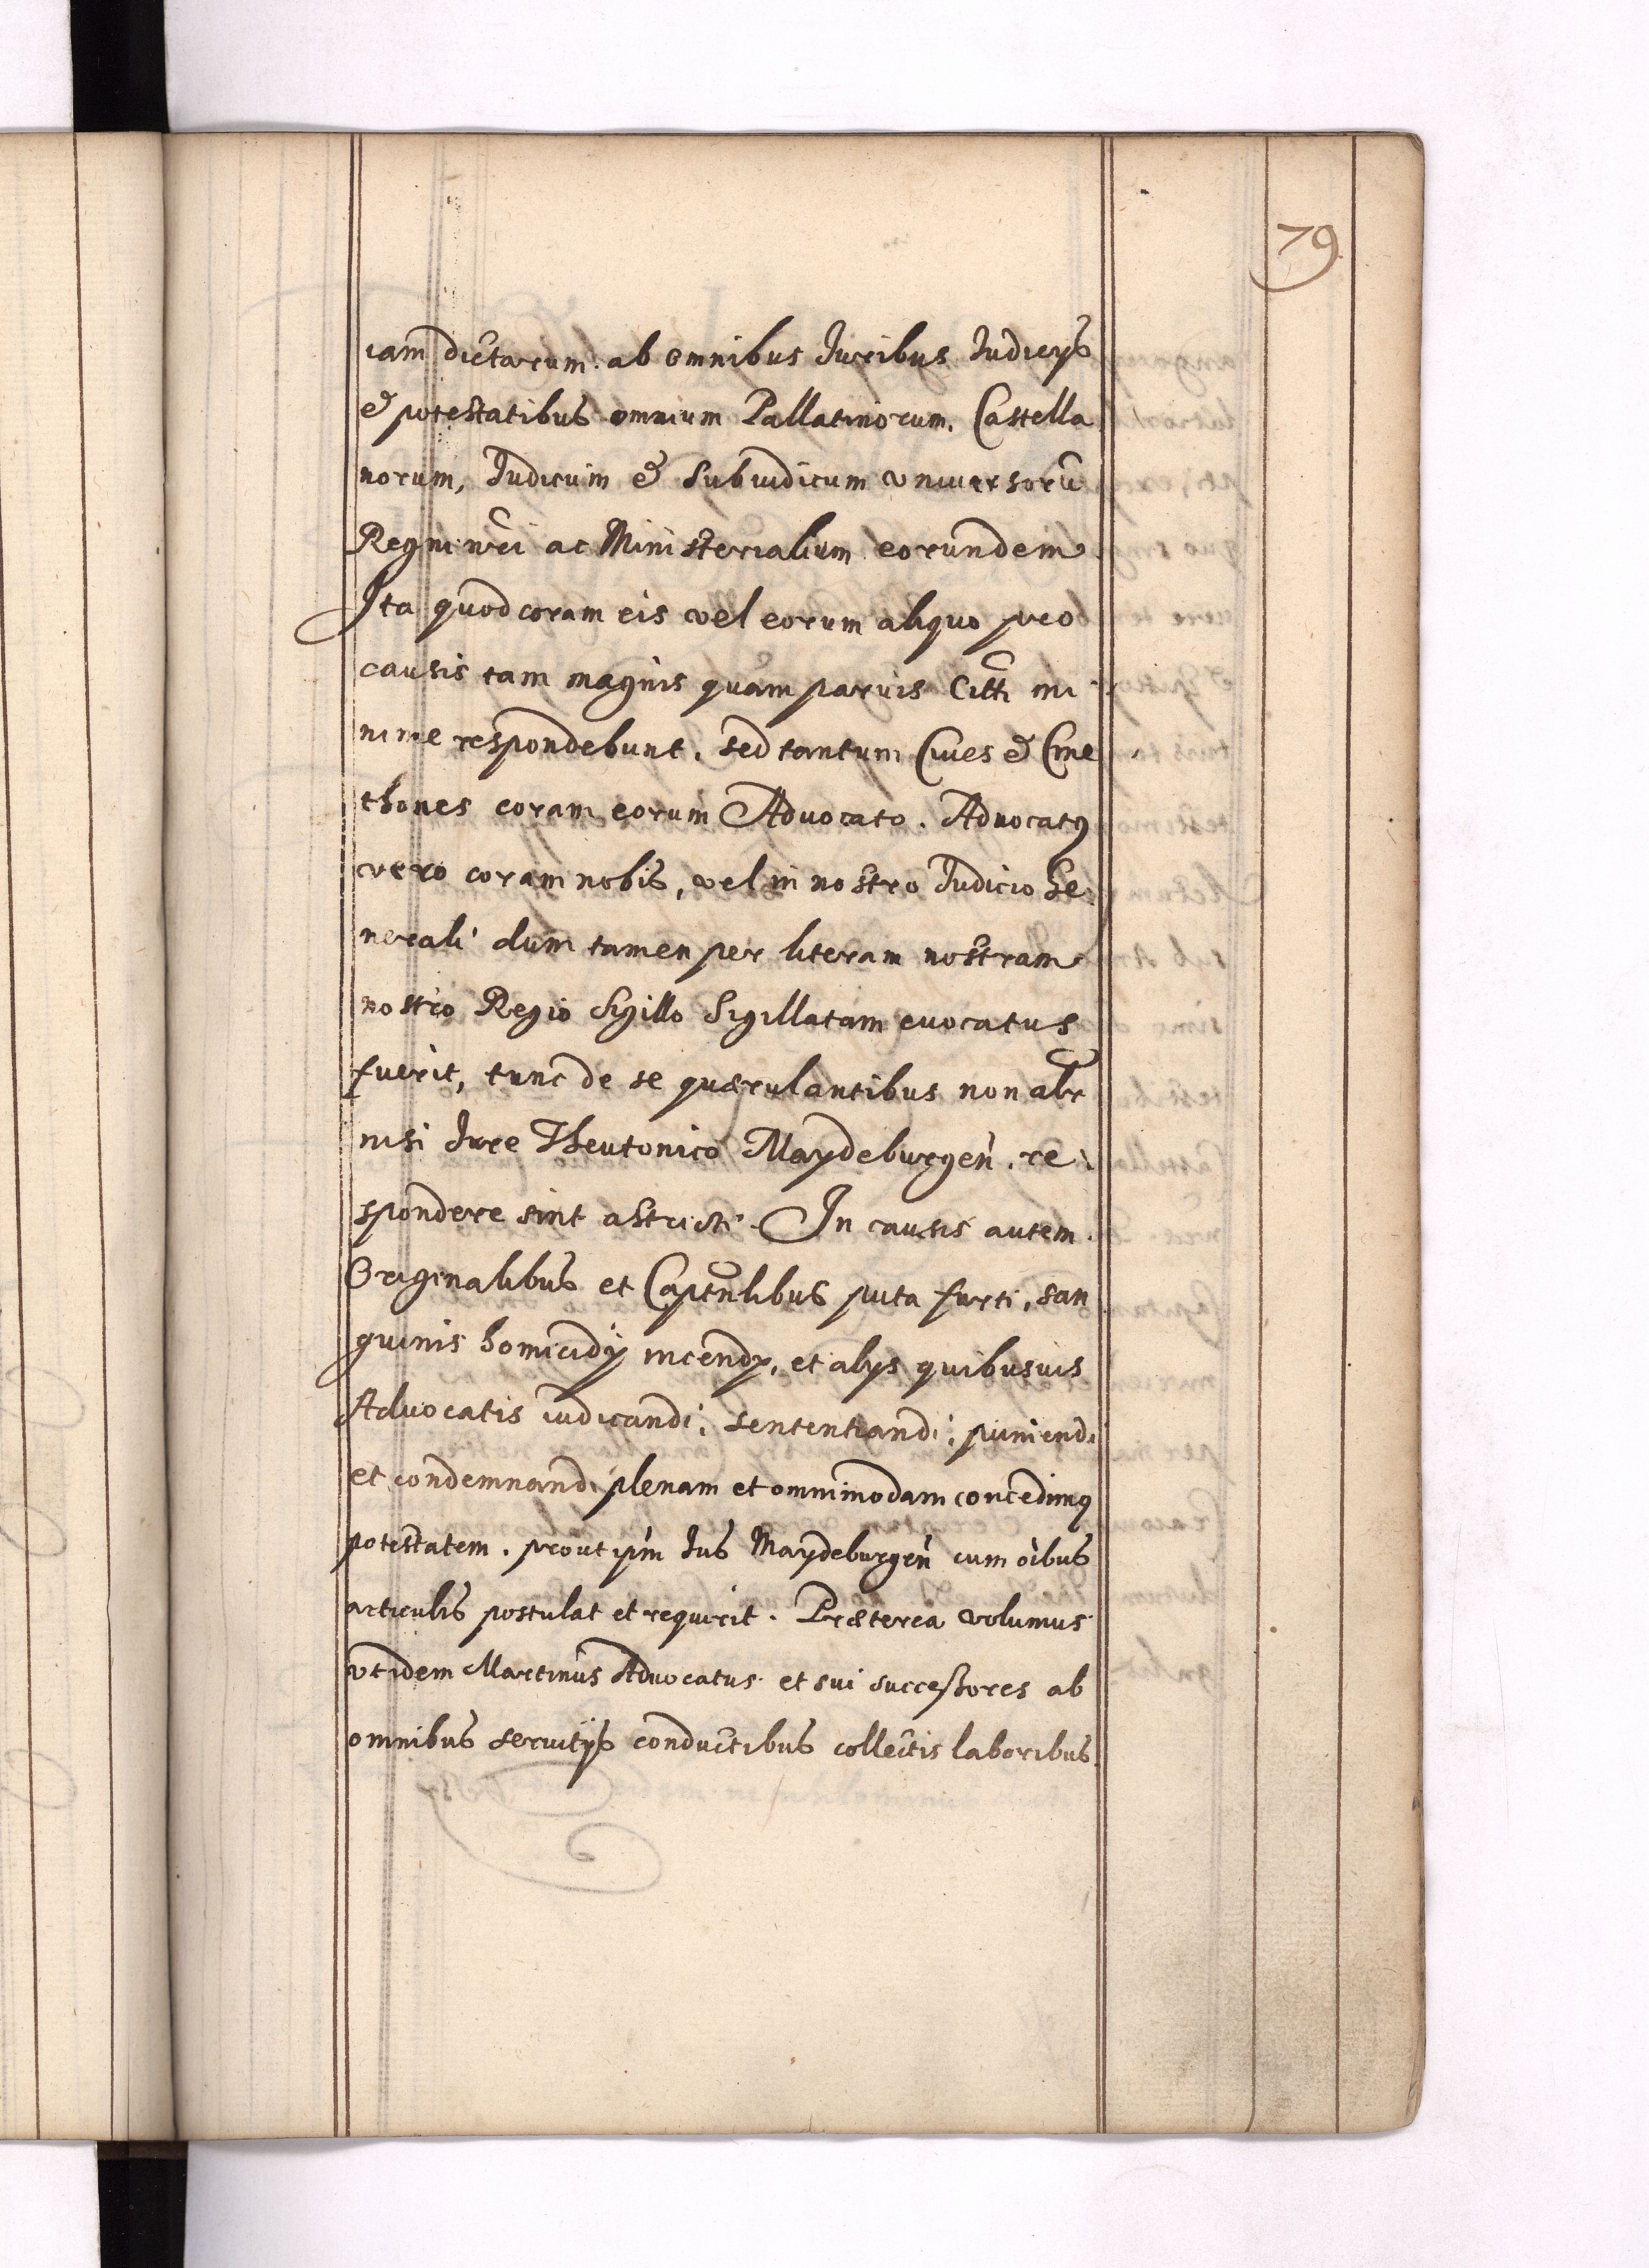 79
iam dictarum. ab omnibus Iuribus Iudicys
& potestatibus omnium Pallatinorum. Castella
norum, Iudicum & Subiudicum vniuersorũ
Regni nr̃i ac Ministerialium eorundem
Ita quod coram eis vel eorum aliquo pro
causis tam magnis quàm paruis Citti mi
nime respondebunt. sed tantum Ciues & Cme
thones coram eorum Aduocato. Aduocatq
vero coram nobis, vel in nostro Iudicio Ge
nerali dum tamen per literam nostram
nostro Regio Sigillo Sigillatam euocatus
fuerit, tunc de se quærulantibus non alr̃
nisi Iure Theutonico Maydeburgeñ. re
spondere sint astricti. In causis autem.
Originalibus et Captnlibus puta furti, san
guinis homicidÿ incendÿ, et alys quibusuis
Aduocatis iudicandi; sententiandi; puniendi
et condemnandi plenam et omnimodam concedimq
potestatem. prout ipm̃ Ius Maydeburgeñ cum oìbus
articulis postulat et requirit. Præterea volumus
vt idem Martinus Aduocatus et sui successores ab
omnibus seruitÿs conductibus collectis laboribus